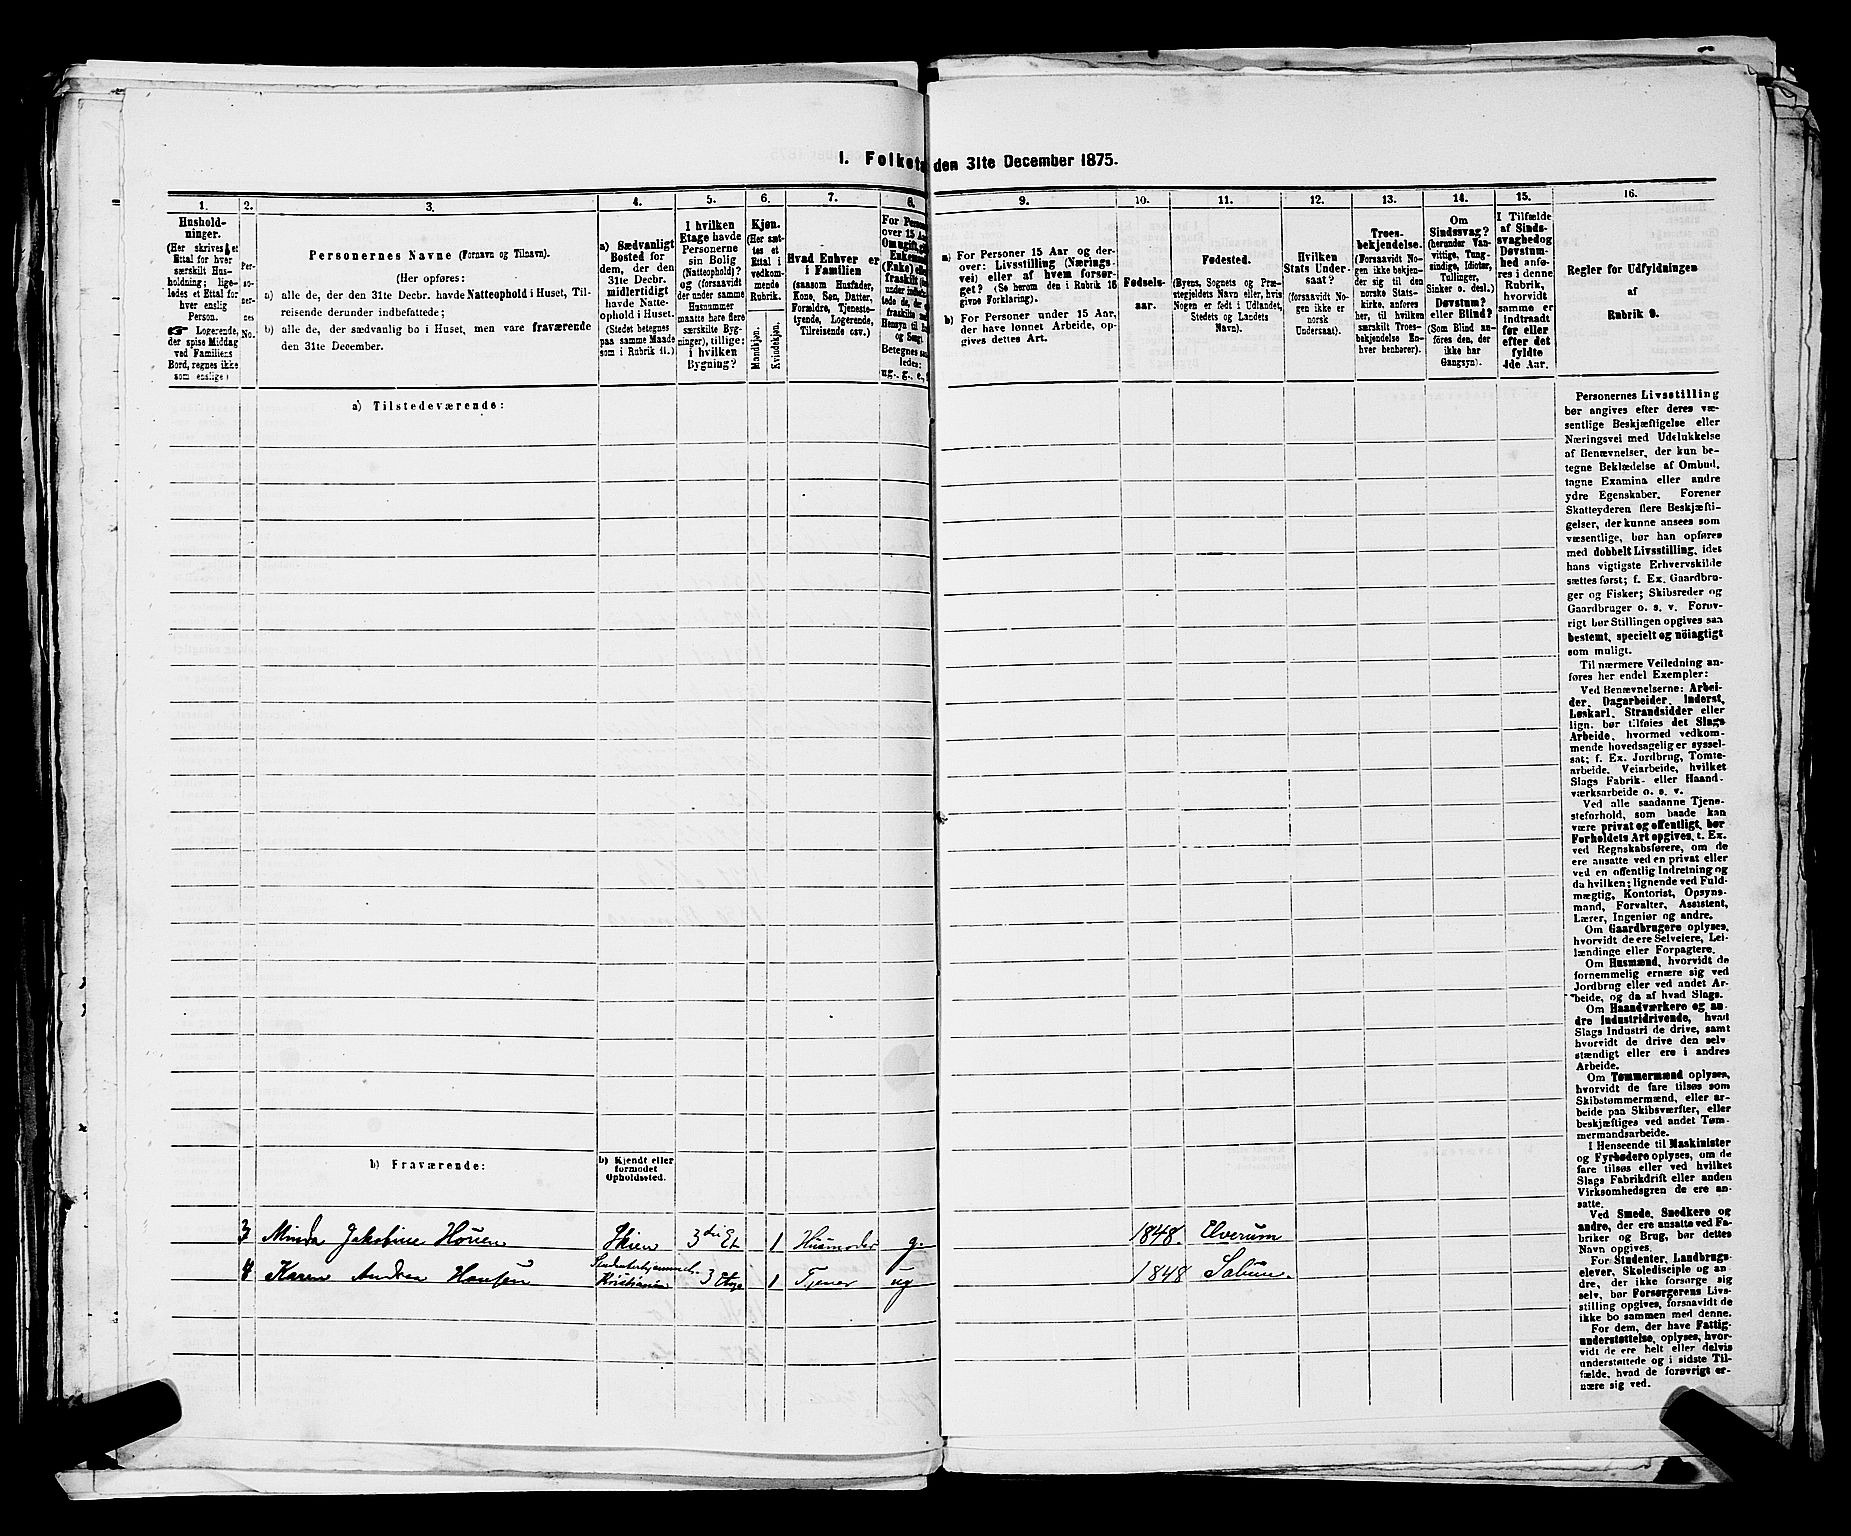 I. Folketæ den 31te December 1875.
1. 2. 3. 4. 5. 6. 7. 8. 9. 10. 11. 12. 13. 14. 15. 16.
Hushold-
ninger.
(Her skrives et
Ettal for hver
særskilt Hus-
holdning; lige-
ledes et Ettal for
hver enslig
Person.
☛ Logerende,
der spise Middag
ved Familiens
Bord, regnes ikke
som enslige)
Per-
so-
ner-
nes
No.
Personernes Navne (Fornavn og Tilnavn).
(Her opføres:
a) alle de, der den 31te Decbr. havde Natteophold i Huset, Til-
reisende derunder indbefattede;
b) alle de, der sædvanlig bo i Huset, men vare fraværende
den 31te December.
a) Sædvanligt
Bosted for
dem, der den
31te Decbr.
midlertidigt
havde Natte-
ophold i Huset.
(Stedet betegnes
paa samme Maade
som i Rubrik 11.)
I hvilken
Etage havde
Personerne
sin Bolig
(Natteophold)?
og (forsaavidt
der under samme
Husnummer
maatte høre flere
særskilte Byg-
ninger), tillige:
i hvilken
Bygning?
Kjøn.
(Her sæt-
tes et
Ettal i
vedkom-
mende
Rubrik.
Mandkjøn.
Kvindekjøn.
Hvad Enhver er
i Familien
(saasom Husfader,
Kone, Søn, Datter,
Forældre, Tjeneste-
tyende, Logerende,
Tilreisende osv.)
For Person
over 15 Aar
Om ugift, gift
Enkemand
(Enke) eller
fraskilt
under indbefat-
tede de, der ere
fraskilte
Hensyn til
og Seng).
Betegnes saa-
ledes:
ug., g., e., f.
a) For Personer 15 Aar og der-
over: Livsstilling (Nærings-
vei) eller af hvem forsør-
get? (Se herom den i Rubrik 16
givne Forklaring).
b) For Personer under 15 Aar,
der have lønnet Arbeide, op-
gives dettes Art.
Fødsels-
aar.
Fødested.
(Byens, Sognets og Præ-
stegjeldets Navn eller, hvis
Nogen er født i Udlandet,
Stedets og Landets
Navn).
Hvilken
Stats Under-
saat?
(forsaavidt No-
gen ikke er
norsk
Undersaat).
Troes-
bekjendelse.
(Forsaavidt No-
gen ikke bekjen-
der sig til den
norske Stats-
kirke, anføres
her, til hvilken
særskilt Troes-
bekjendelse En-
hver benhører).
Om
Sindssvag?
(herunder Van-
vittige, Tung-
sindige, Idioter,
Tullinger,
Sinker o. desl.)
Døvstum?
eller Blind?
(Som Blind an-
føres den, der
ikke har
Gangsyn).
I Tilfælde
af Sinds-
svaghed og
Døvstum-
hed anfø-
res i denne
Rubrik,
hvorvidt
samme er
indtraadt
før eller
efter det
fyldte
4de Aar.
Regler for Udfyldningen
af
Rubrik 9.
a) Tilstedeværende:
Personernes Livsstilling
bør angives efter deres væ-
sentlige Beskjæftigelse eller
Næringsvei med Udelukkelse
af Benævnelser, der kun be-
tegne Beklædelse af Ombud,
tagne Examina eller andre
ydre Egenskaber. Forener
Skatteyderen flere Beskjæfti-
gelser, der kunne ansees som
væsentlige, bør han opføres
med dobbelt Livsstilling, idet
hans vigtigste Erhvervskilde
sættes først; f. Ex. Gaardbru-
ger og Fisker; Skibsreder og
Gaardbruger o. s. v. Forøv-
rigt bør Stillingen opgives saa
bestemt, specielt og nøiagtigt
som muligt.
Til nærmere Veiledning an-
føres her endel Exempler:
Ved Benævnelserne: Arbei-
der, Dagarbeider, Inderst,
Løskarl, Strandsidder eller
lign. bør tilføies det Slags
Arbeide, hvormed vedkom-
mende hovedsagelig er syssel-
sat; f. Ex. Jordbrug, Tomte-
arbeide, Veiarbeide, hvilket
Slags Fabrik- eller Haand-
værksarbeide o. s. v.
Ved alle saadanne Tjene-
steforhold, som baade kan
være privat og offentligt, bør
Forholdets Art opgives, t. Ex.
ved Regnskabsførere, om de
ere ansatte ved en privat eller
ved en offentlig Indretning og
da hvilken; lignende ved Fuld-
mægtig, Kontorist, Opsyns-
mand, Forvalter, Assistent,
Lærer, Ingeniør og andre.
Om Gaardbrugere oplyses,
hvorvidt de ere Selveiere, Lei-
lændinge eller Forpagtere.
Om Husmænd, hvorvidt de
fornemmelig ernære sig ved
Jordbrug eller ved andet Ar-
beide, og da af hvad Slags.
Om Haandværkere og an-
dre Industridrivende, hvad
Slags Industri de drive, samt
hvorvidt de drive den selv-
stændigt eller ere i andres
Arbeide.
Om Tømmermænd oplyses,
hvorvidt de fare tilsøs som
Skibstømmermænd, eller ar-
beide paa Skibsværfter, eller
beskjæftiges ved andet Tøm-
mermandsarbeide.
I Henseende til Maskinister
og Fyrbødere oplyses, om de
fare tilsøs eller ved hvilket
Slags Fabrikdrift eller anden
Virksomhedsgren de ere an-
satte.
Ved Smede, Snedkere og
andre, der ere ansatte ved Fa-
briker og Brug, bør dettes
Navn opgives.
For Studenter, Landbrugs-
elever, Skoledisciple og an-
dre, der ikke forsørge sig
selv, bør Forsørgerens Livs-
stilling opgives, forsaavidt de
ikke bo sammen med denne.
For dem, der have Fattig-
understøttelse, oplyses, hvor-
vidt de ere helt eller delvis
understøttede og i sidste Til-
fælde, hvad de forøvrigt er-
nære sig ved.
b) Fraværende:
b) Kjendt eller
formodet
Opholdssted.
3 Minda Jakobine Houen Skien 3die Et 1 Husmoder g. 1848. Elverum
4 Karen Andrea Hansen Studenterhjemmet Kristiania 3 Etage 1 Tjener ug 1848